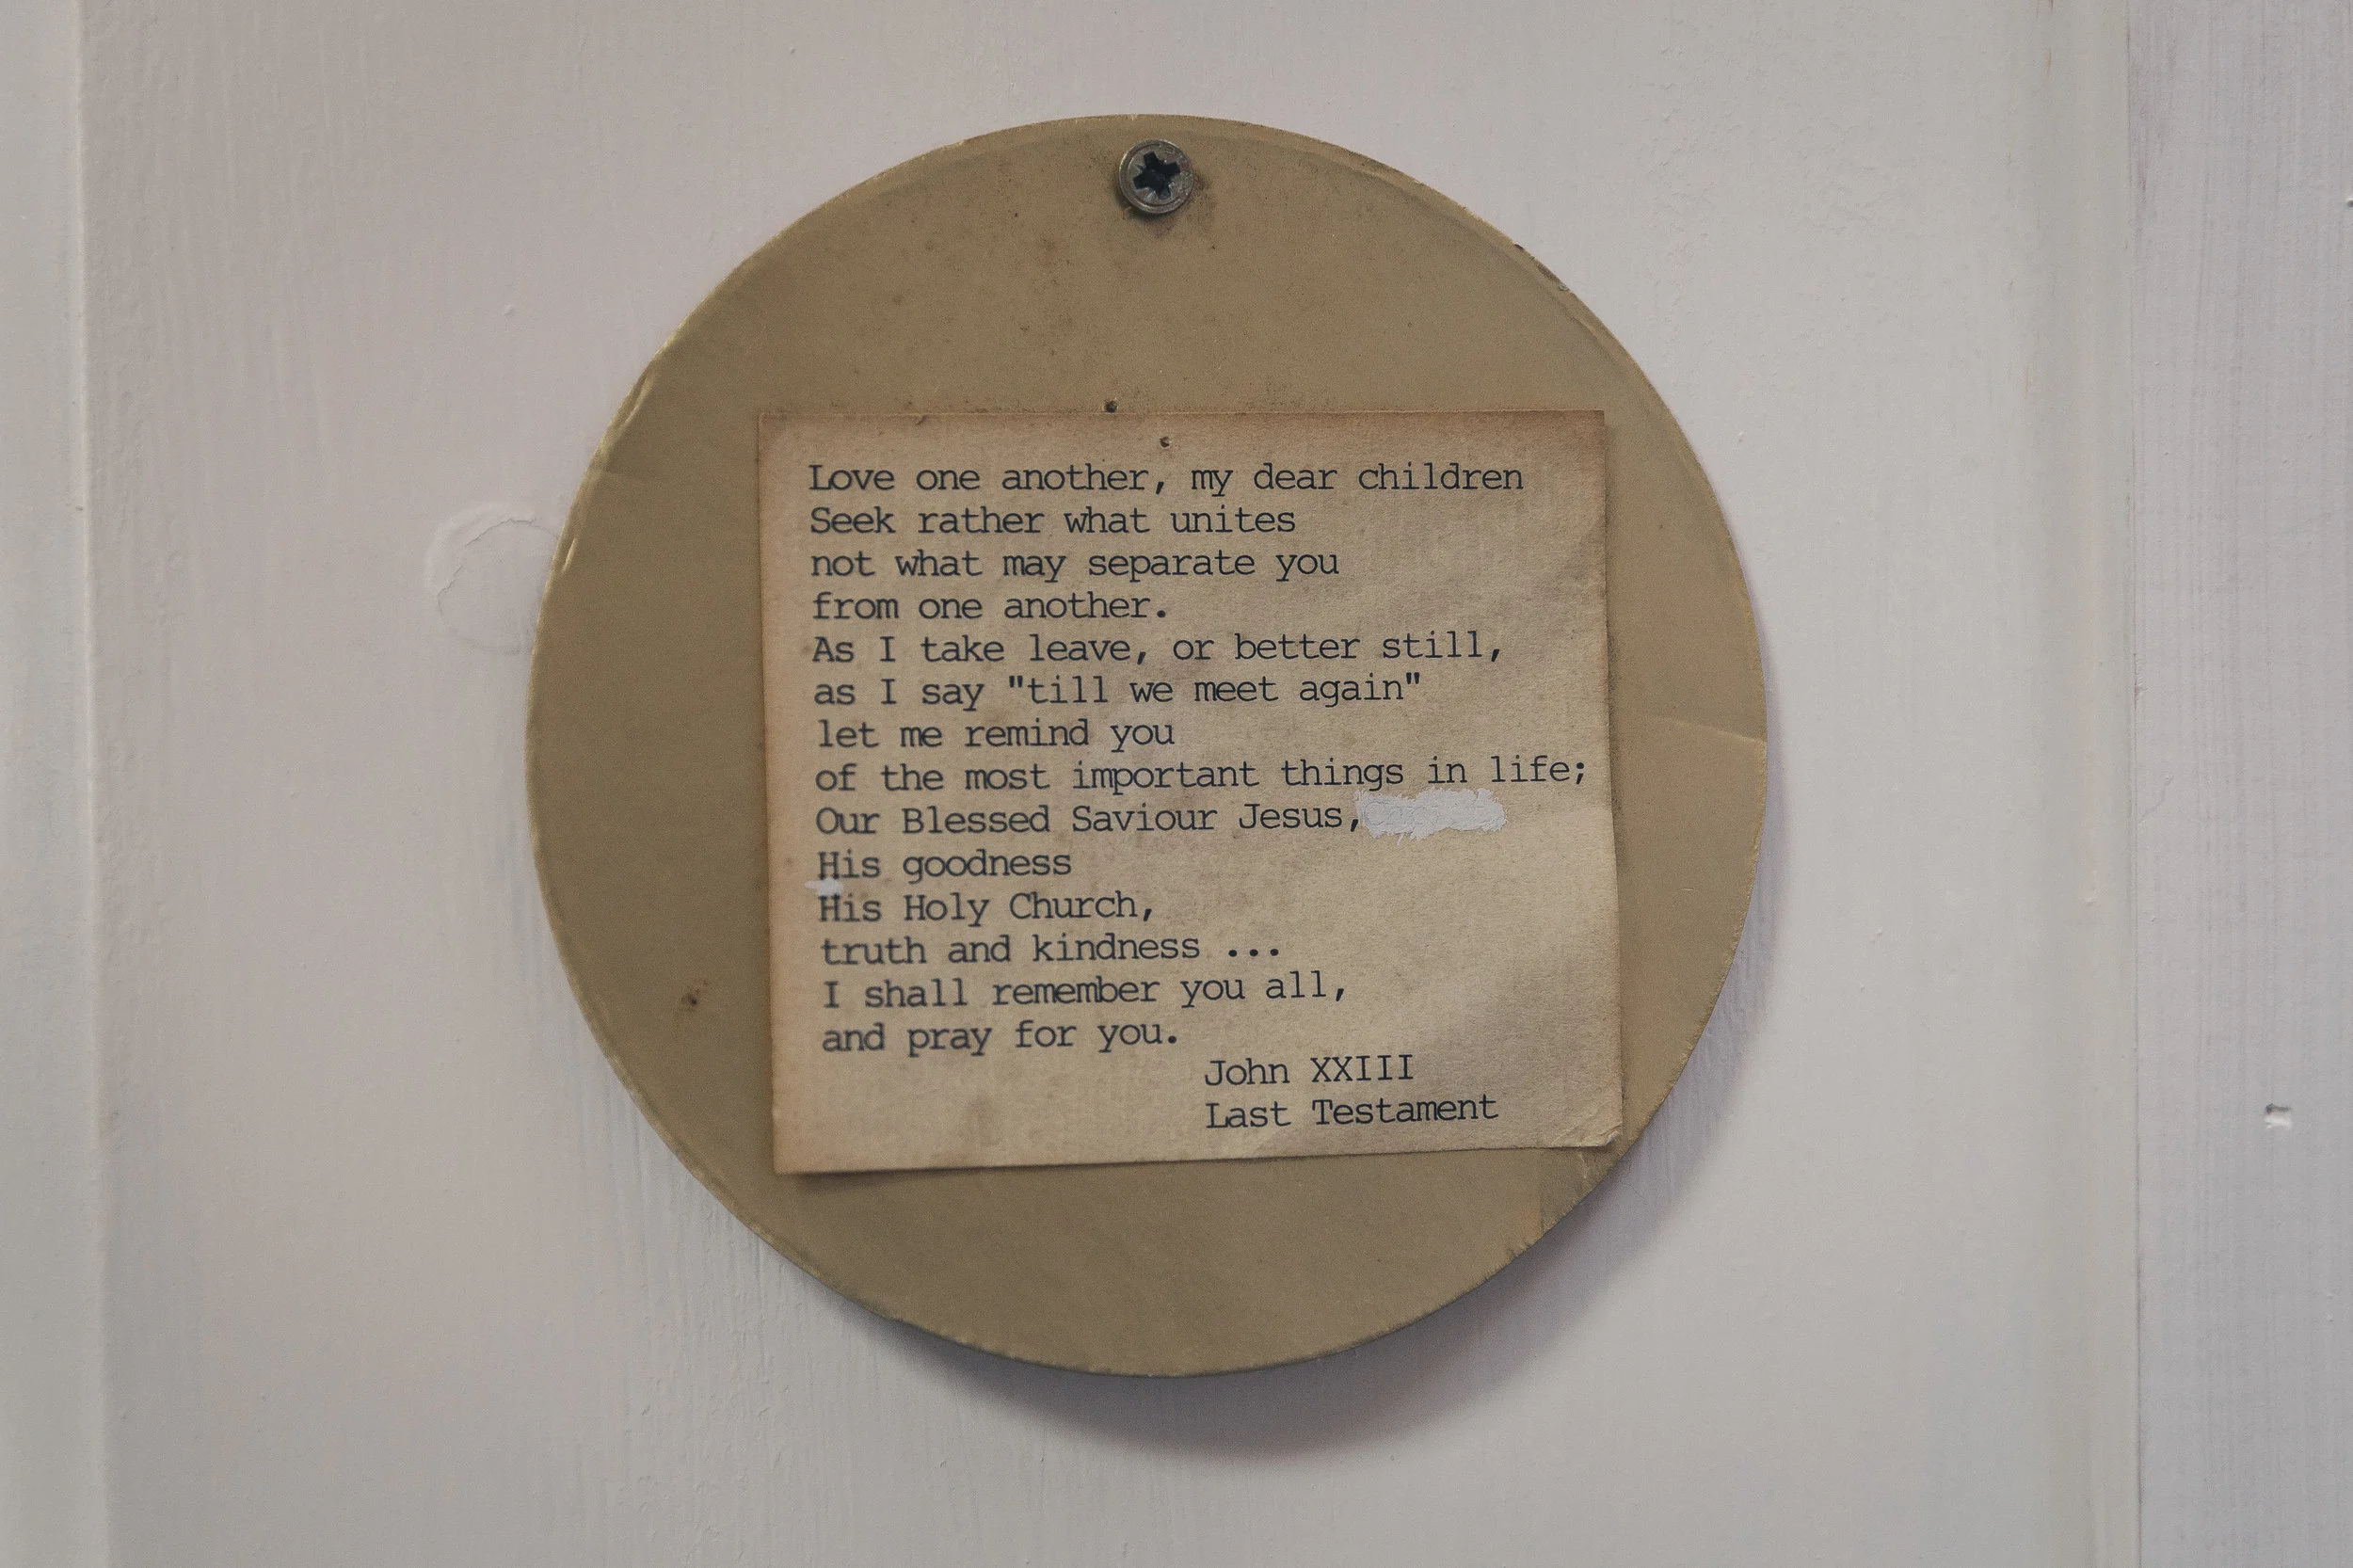 Love one another, my dear children
Seek rather what unites
not what may separate you
from one another.
As I take leave, or better still,
as I say "till we meet again"
let me remind you
of the most important things in life;
Our Blessed Saviour Jesus,
His goodness
His Holy Church,
truth and kindness ...
I shall remember you all,
and pray for you.
John XXIII
Last Testament